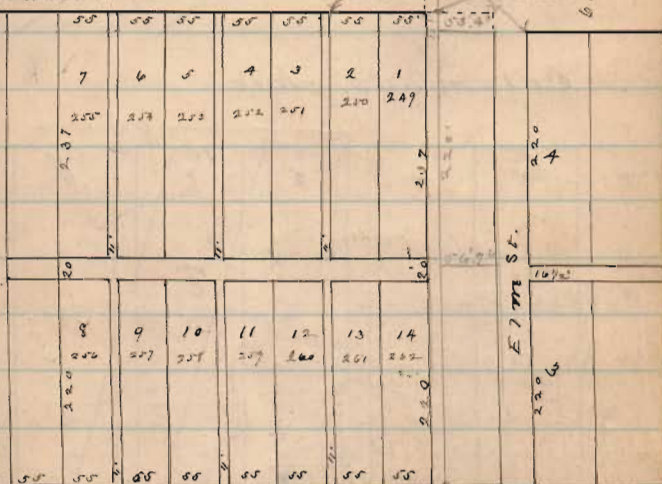 55 55 55 55 55 55 55
7 6 5 4 3 2 1
255 254 253 252 251 250 249
237 217 220 220 4
11' 11' 11'
20 20 56'7" 16 1/2'
Elm St.
8 9 10 11 12 13 14
256 257 258 259 260 261 262
220 220 220 3
11' 11' 11'
55 55 55 55 55 55 55 55